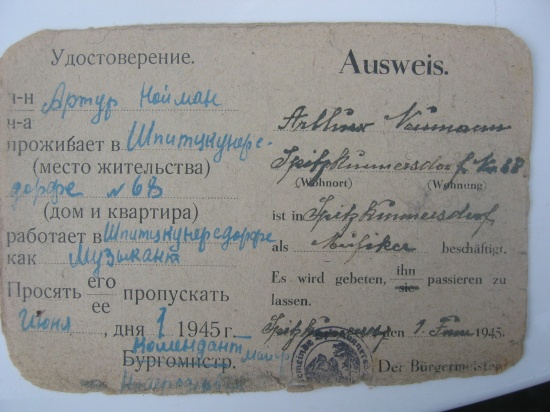 Удостоверение.
Артур Нойман
н-а
проживает в Шпитцкунерс-
(место жительства)
дорфе № 68
(дом и квартира)
работает в Шпитцкунерсдорфе
как Музыкант
Просять его пропускать
ее
Июня, дня 1 1945 г.
Комендант
Бургомистр.
Ausweis.
Arthur Neumann
Spitzkunnersdorf Nr. 68
(Wohnort) (Wohnung)
ist in Spitzkunnersdorf
als Musiker beschäftigt.
Es wird gebeten, ihn passieren zu
sie
lassen.
den 1. Juni 1945.
Der Bürgermeister